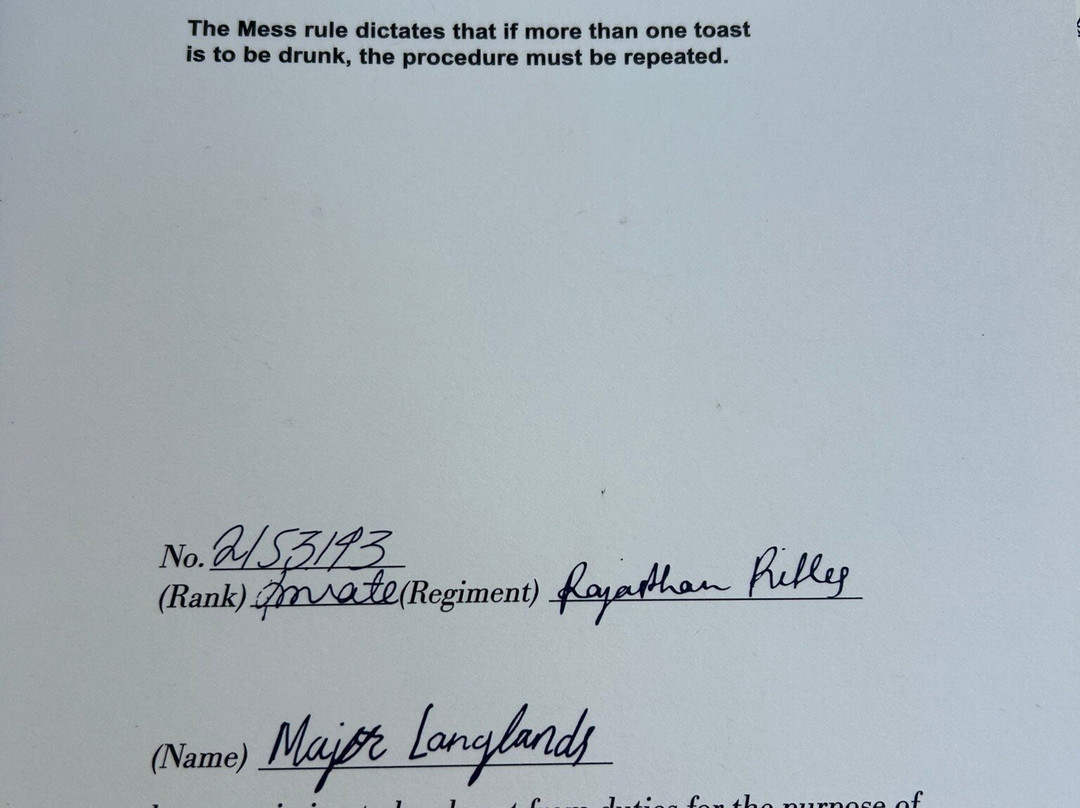 The Mess rule dictates that if more than one toast
is to be drunk, the procedure must be repeated.
No. 2153193
(Rank) Private (Regiment) Rajasthan Rifles
(Name) Major Langlands
duties for the purpose of